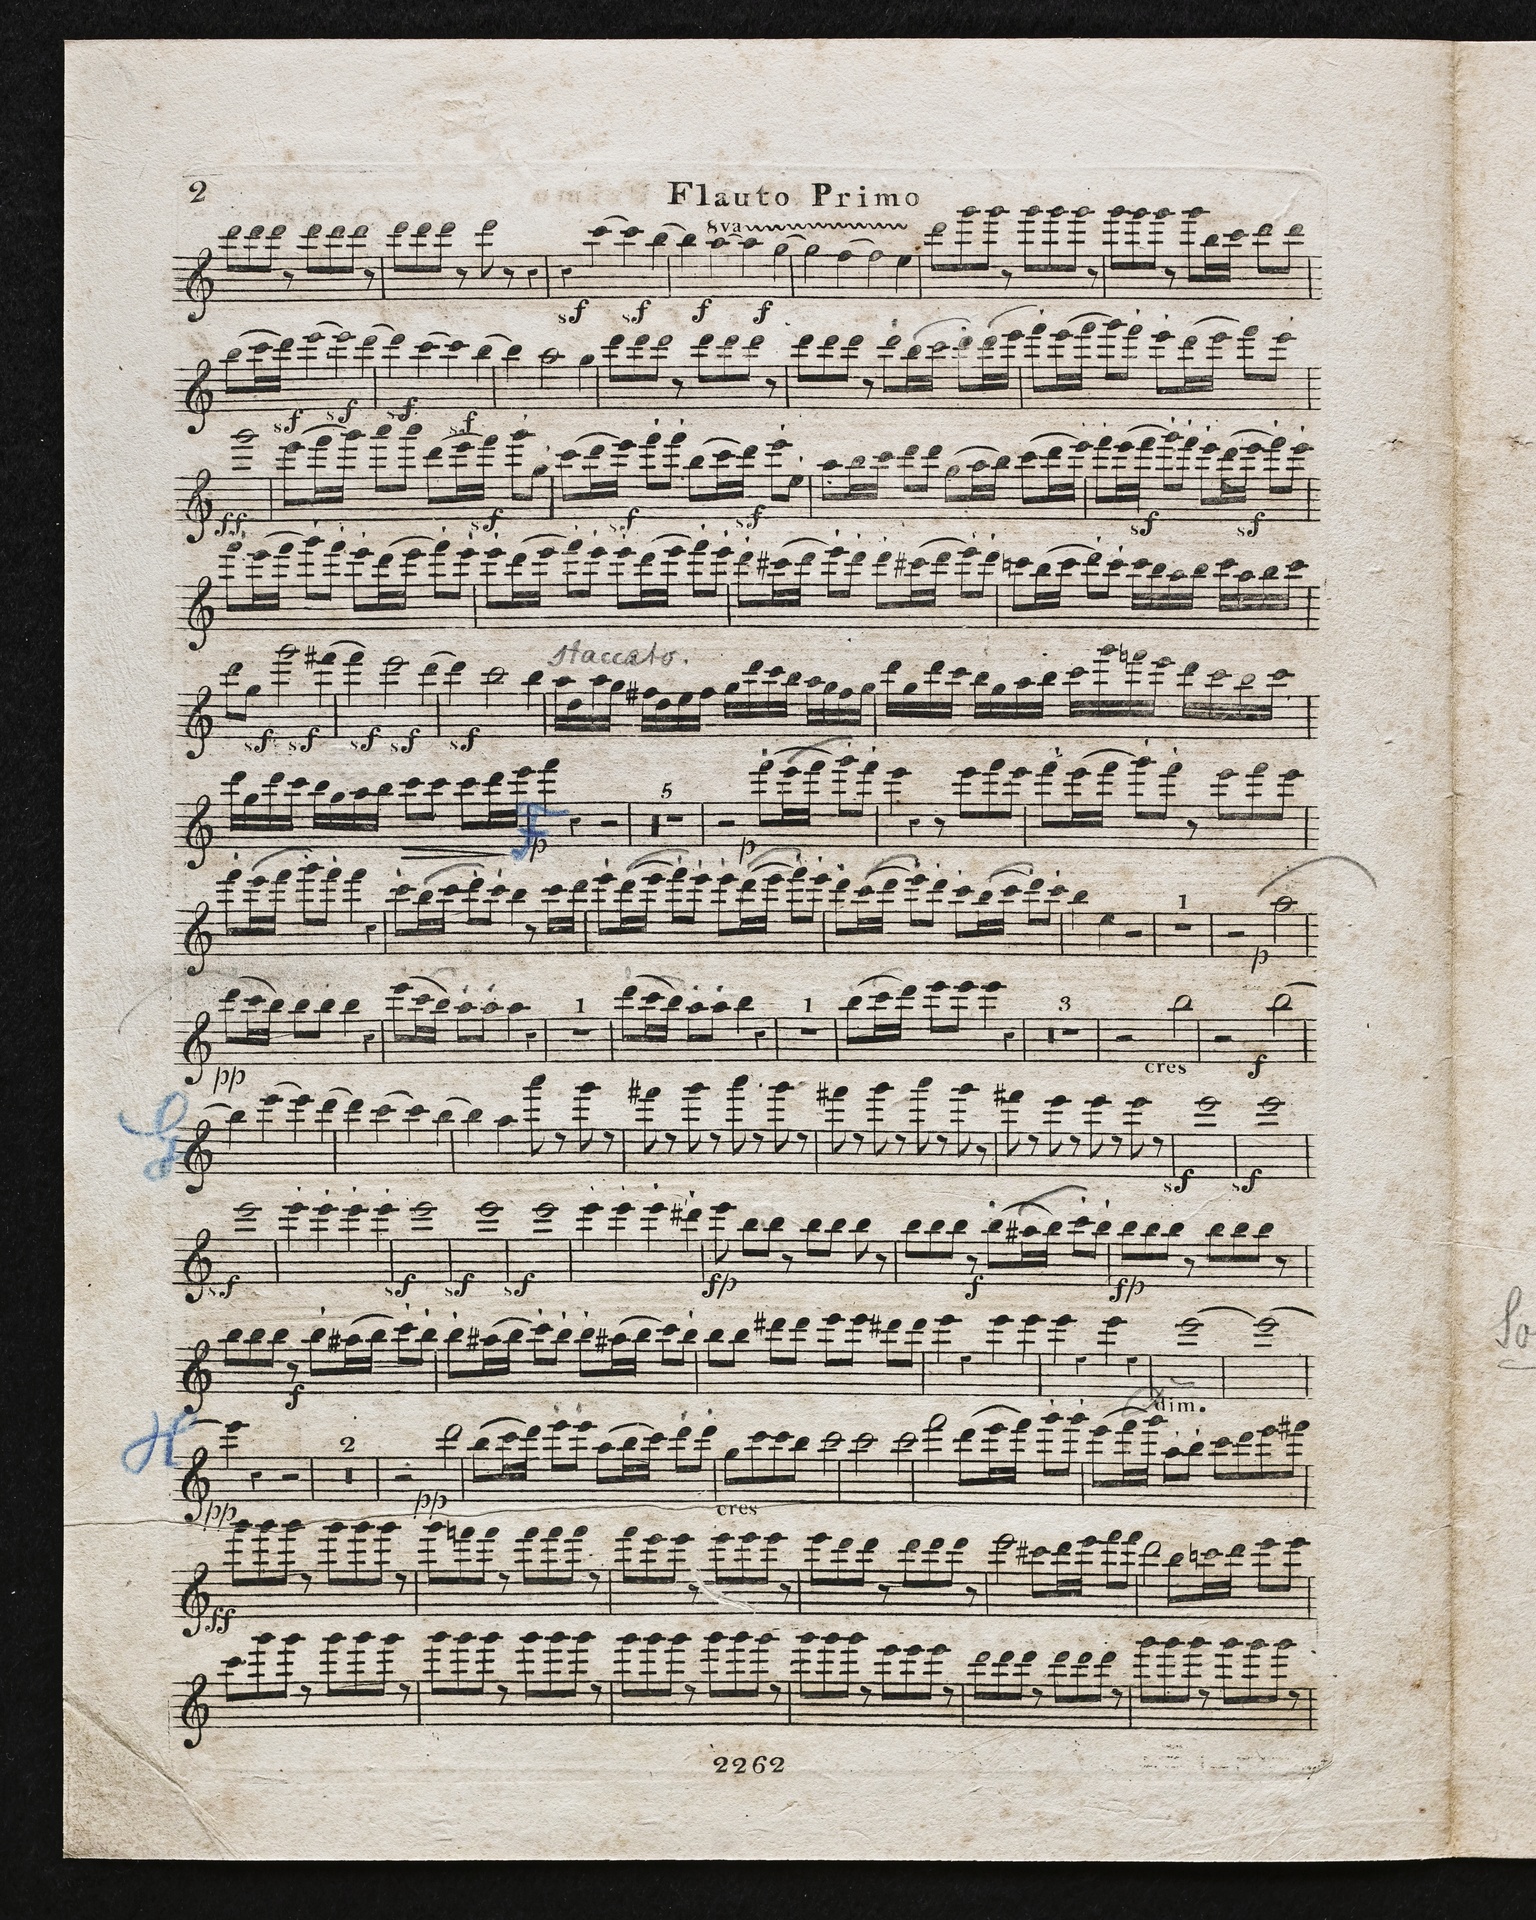 2
Flauto Primo
8va
sf sf f f
sf sf sf sf
ff sf sf sf sf sf
staccato.
sf sf sf sf sf
5
F p p
1
p
pp 1 1 3 cres f
G
sf sf
sf sf sf sf fp f fp
f dim.
H
2
pp pp cres
ff
2262
So